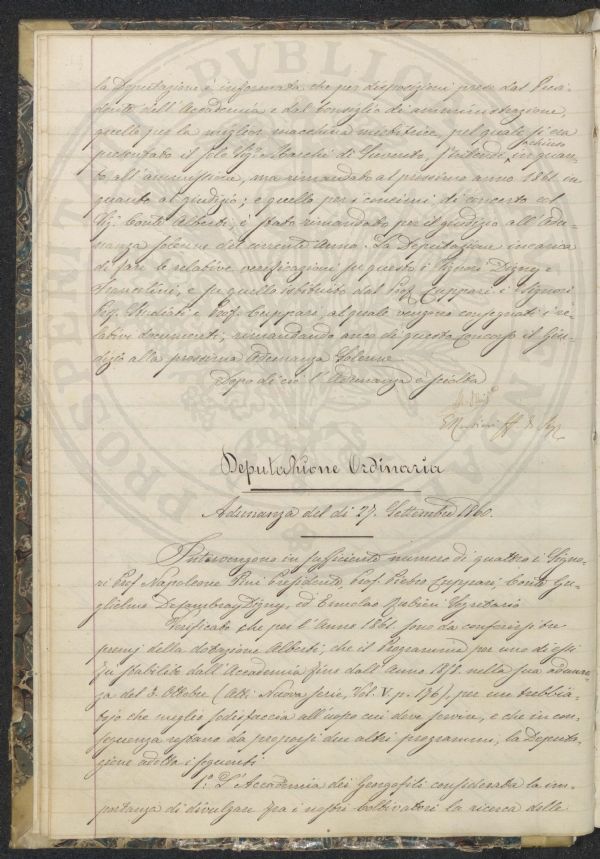 la Deputazione è informata che per disposizioni prese dal Presi-
dente dell'Accademia e dal Consiglio di amministrazione,
quello per la miglior macchina mietitrice, pel quale si era
presentato il solo Sig.r Marchi di s'intende chiuso in quan-
to all'ammissione, ma rimandato al prossimo anno 1861 in
quanto al giudizio; e quello per i concimi di concerto col
Sig. Conte Alberti, è stato rimandato per il giudizio all'Adu-
nanza solenne del corrente Anno. La Deputazione incarica
di fare le relative verificazioni su questo i Signori Digny e
Franceschini, e su quello istituito dal Prof. Cuppari i Signori
Cav. Ridolfi e Prof. Cuppari, al quale vengono consegnati i re-
lativi documenti, rimandando anco di questo Concorso il Giu-
dizio alla prossima Adunanza Solenne
Dopo di ciò l'Adunanza è sciolta
Deputazione Ordinaria
Adunanza del dì 27. Settembre 1860.
Intervengono in sufficiente numero di quattro i Signo-
ri Prof. Napoleone Pini Presidente, Prof. Pietro Cuppari, Conte Gu-
glielmo Decambray Digny, ed Ermolao Rubieri Segretario
Verificato che per l'Anno 1861. sono da conferirsi tre
premj della dotazione Alberti; che il Programma per uno di essi
fu stabilito dall'Accademia fino dall'Anno 1858. nella sua adunan-
za del 3. Ottobre (Atti. Nuova Serie, Vol. V. p. 176), per un trebbia-
tojo che meglio sodisfaccia all'uopo cui deve servire, e che in con-
seguenza restano da proporsi due altri programmi, la Deputa-
zione adotta i seguenti
1.° L'Accademia dei Georgofili considerata la im-
portanza di divulgare fra i nostri coltivatori la ricerca delle
PROSPERITATI
PUBLICAE